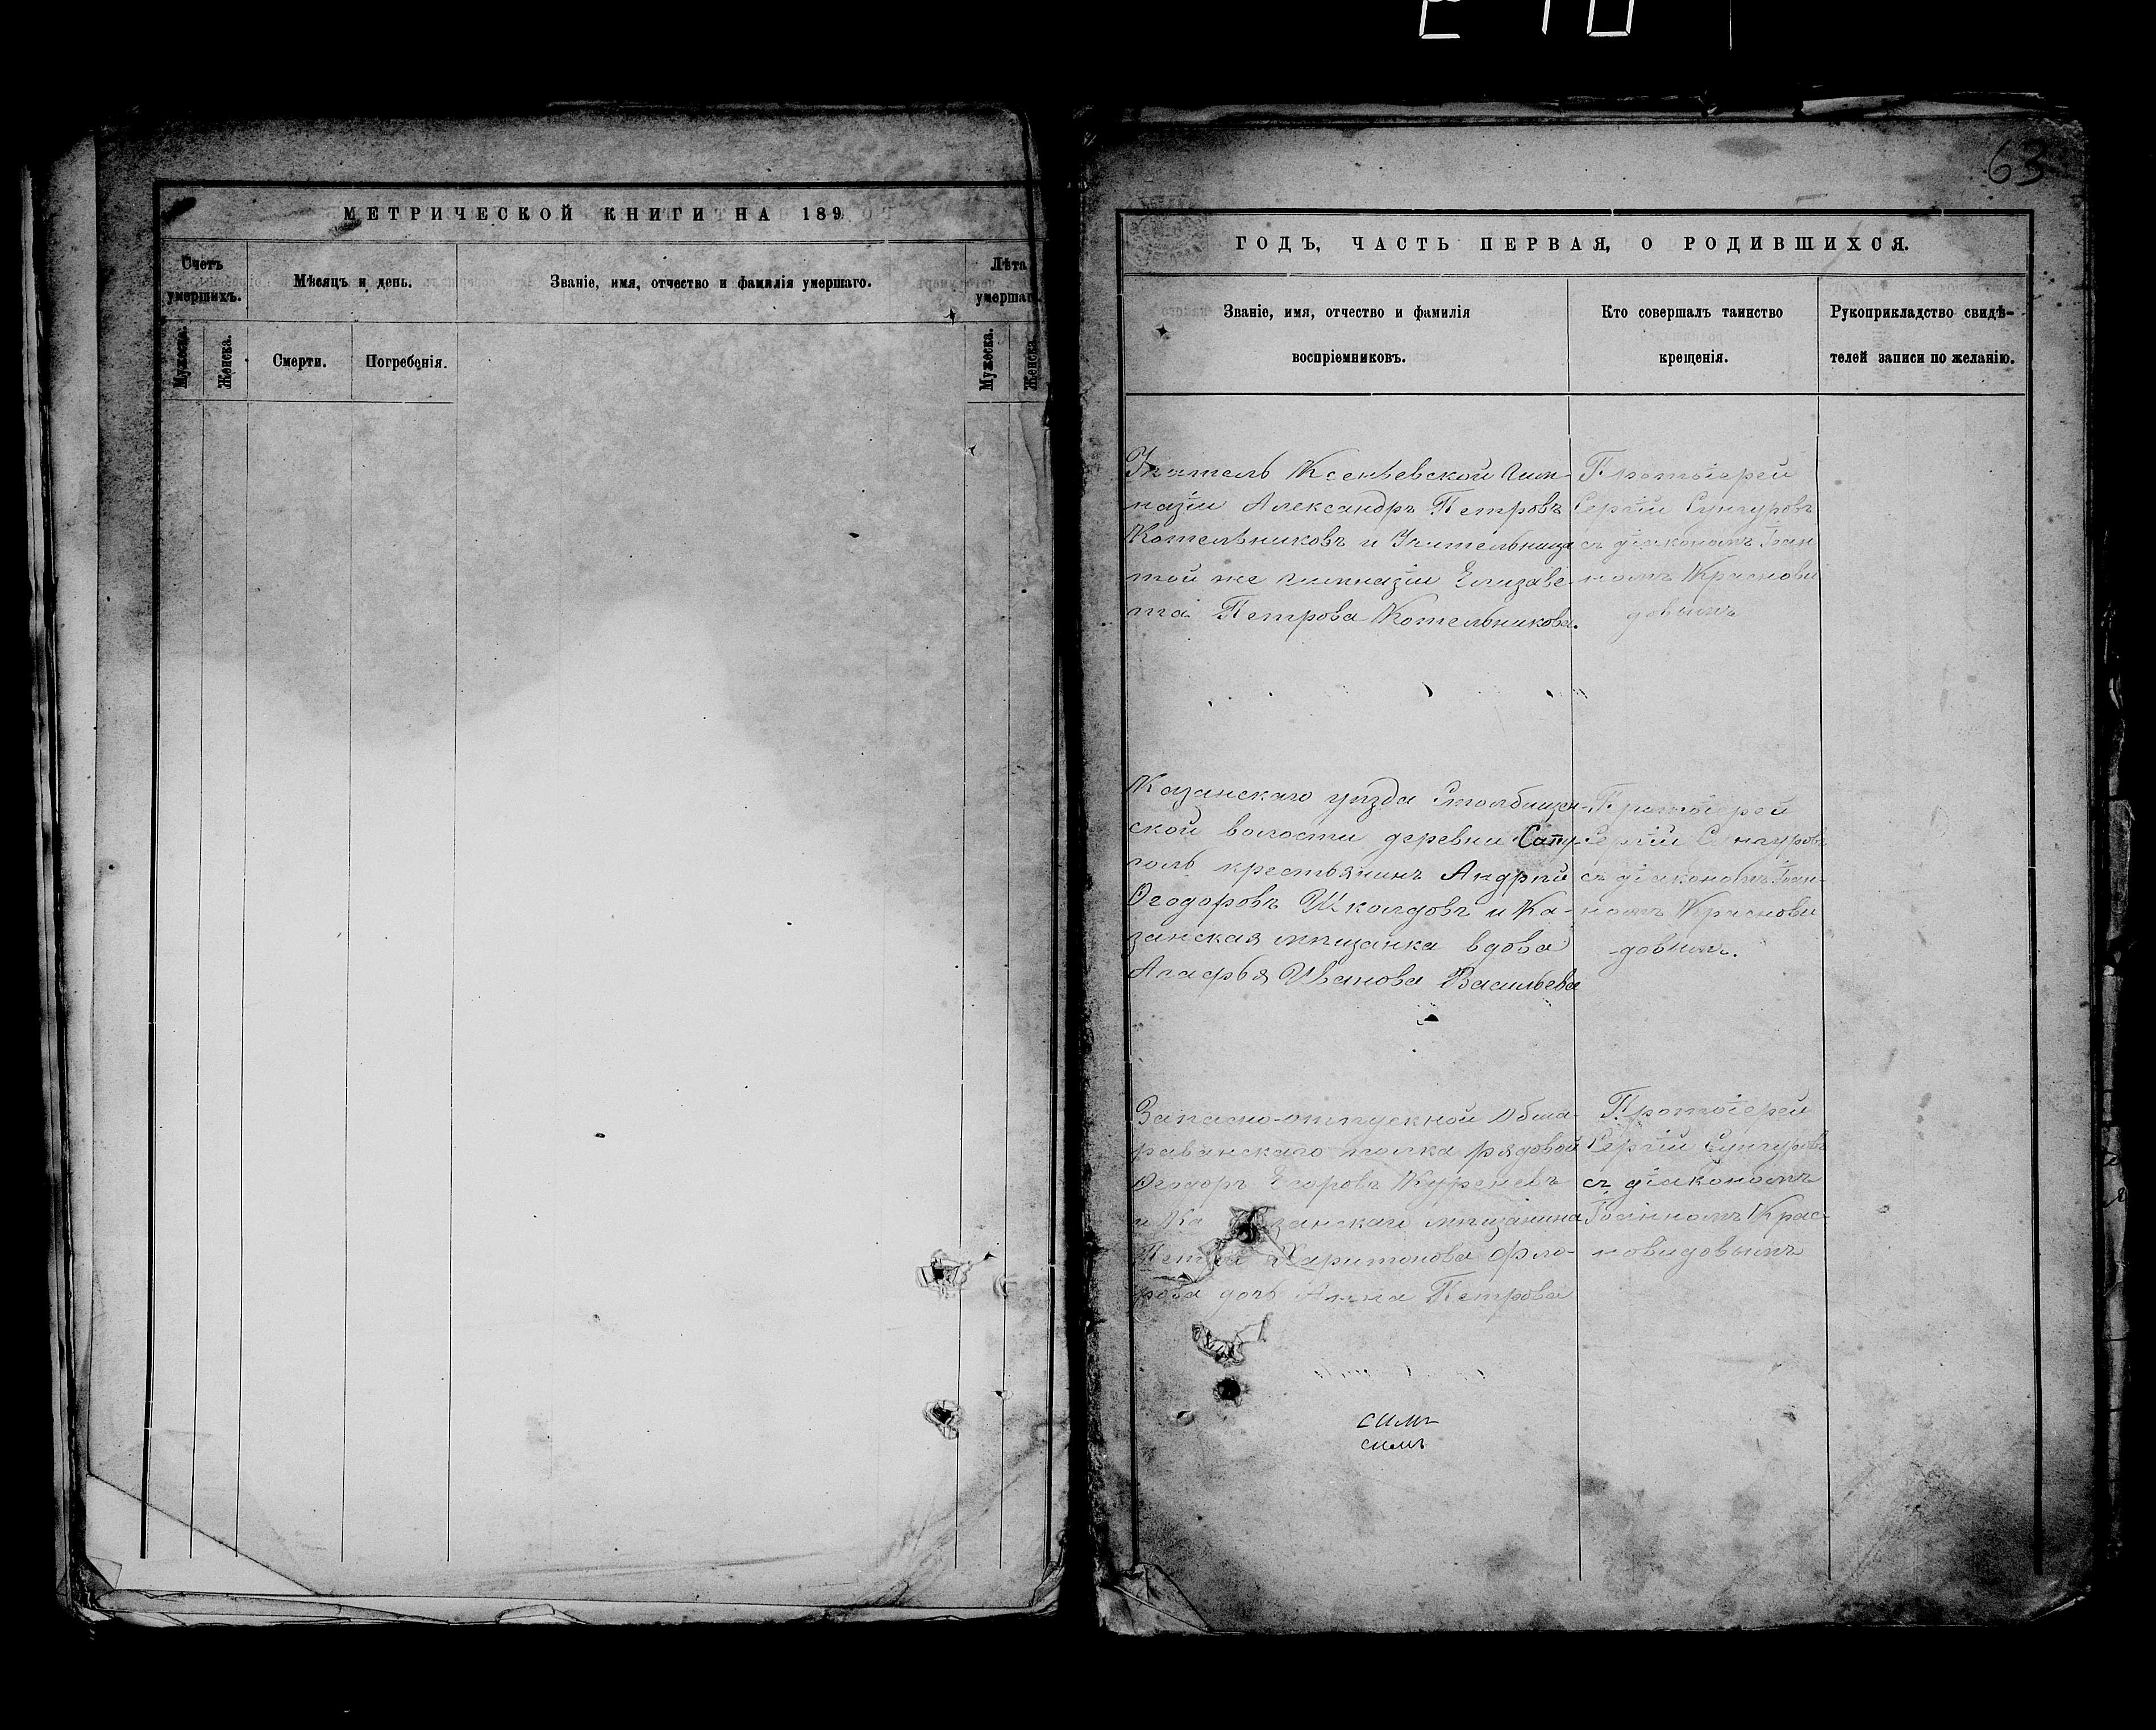 МЕТРИЧЕСКОЙ КНИГИ НА 189
Счетъ умершихъ.
Мѣсяцъ и день.
Званіе, имя, отчество и фамилія умершаго.
Лѣта умершаг
Мужеска.
Женска.
Смерти.
Погребенія.
Мужеска.
Женска.
63
ГОДЪ, ЧАСТЬ ПЕРВАЯ, О РОДИВШИХСЯ.
Званіе, имя, отчество и фамилія
воспріемниковъ.
Кто совершалъ таинство
крещенія.
Рукоприкладство свидѣ-
телей записи по желанію.
Учитель Ксеніевской гим-
назіи Александръ Петровъ
Котельниковъ и Учительница
той же гимназіи Елизаве-
та Петрова Котельникова.
Протоіерей
Сергій Сунгуровъ
съ діакономъ Іоан
номъ Краснови
довымъ
Казанскаго уѣзда Столбищен-
ской волости деревни Сапу-
голь крестьянинъ Андрей
Ѳеодоровъ Школдовъ и Ка-
занская мѣщанка вдова
Агафья Иванова Васильева
Протоіерей
Сергій Сунгуровъ
съ діакономъ Іоан-
номъ Краснови
довымъ.
Запасно-отпускной Обша-
раванскаго полка рядовой
Ѳеодоръ Егоровъ Куреневъ
и Ка занскаго мѣщанина
Петра Харитонова Фло-
рова дочь Анна Петрова
Протоіерей
Сергій Сунгуровъ
съ діакономъ
Іоанномъ Крас-
новидовымъ
симъ
симъ